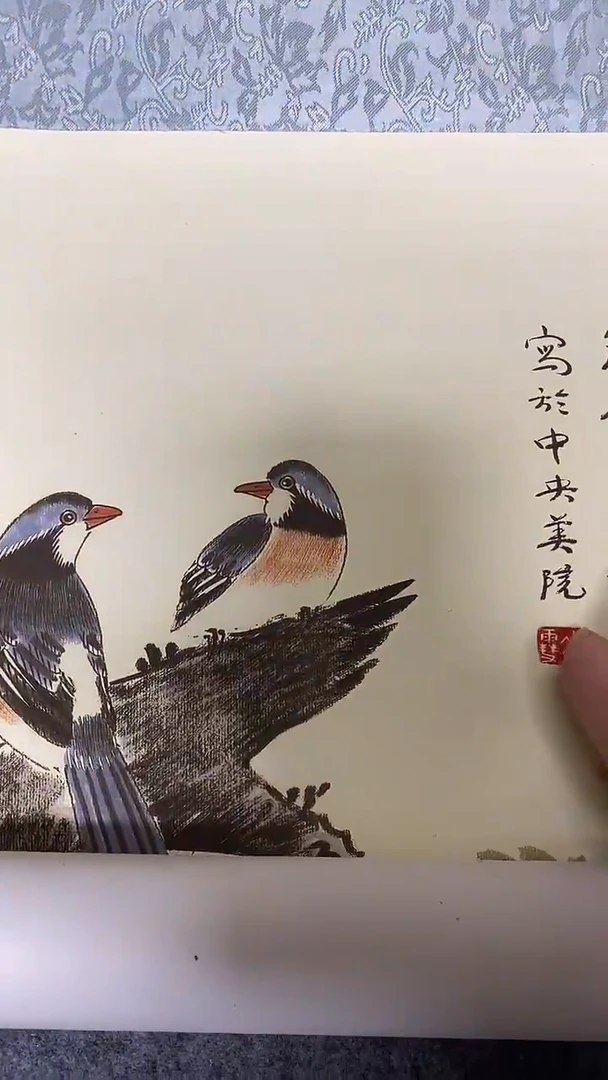 寫於中央美院